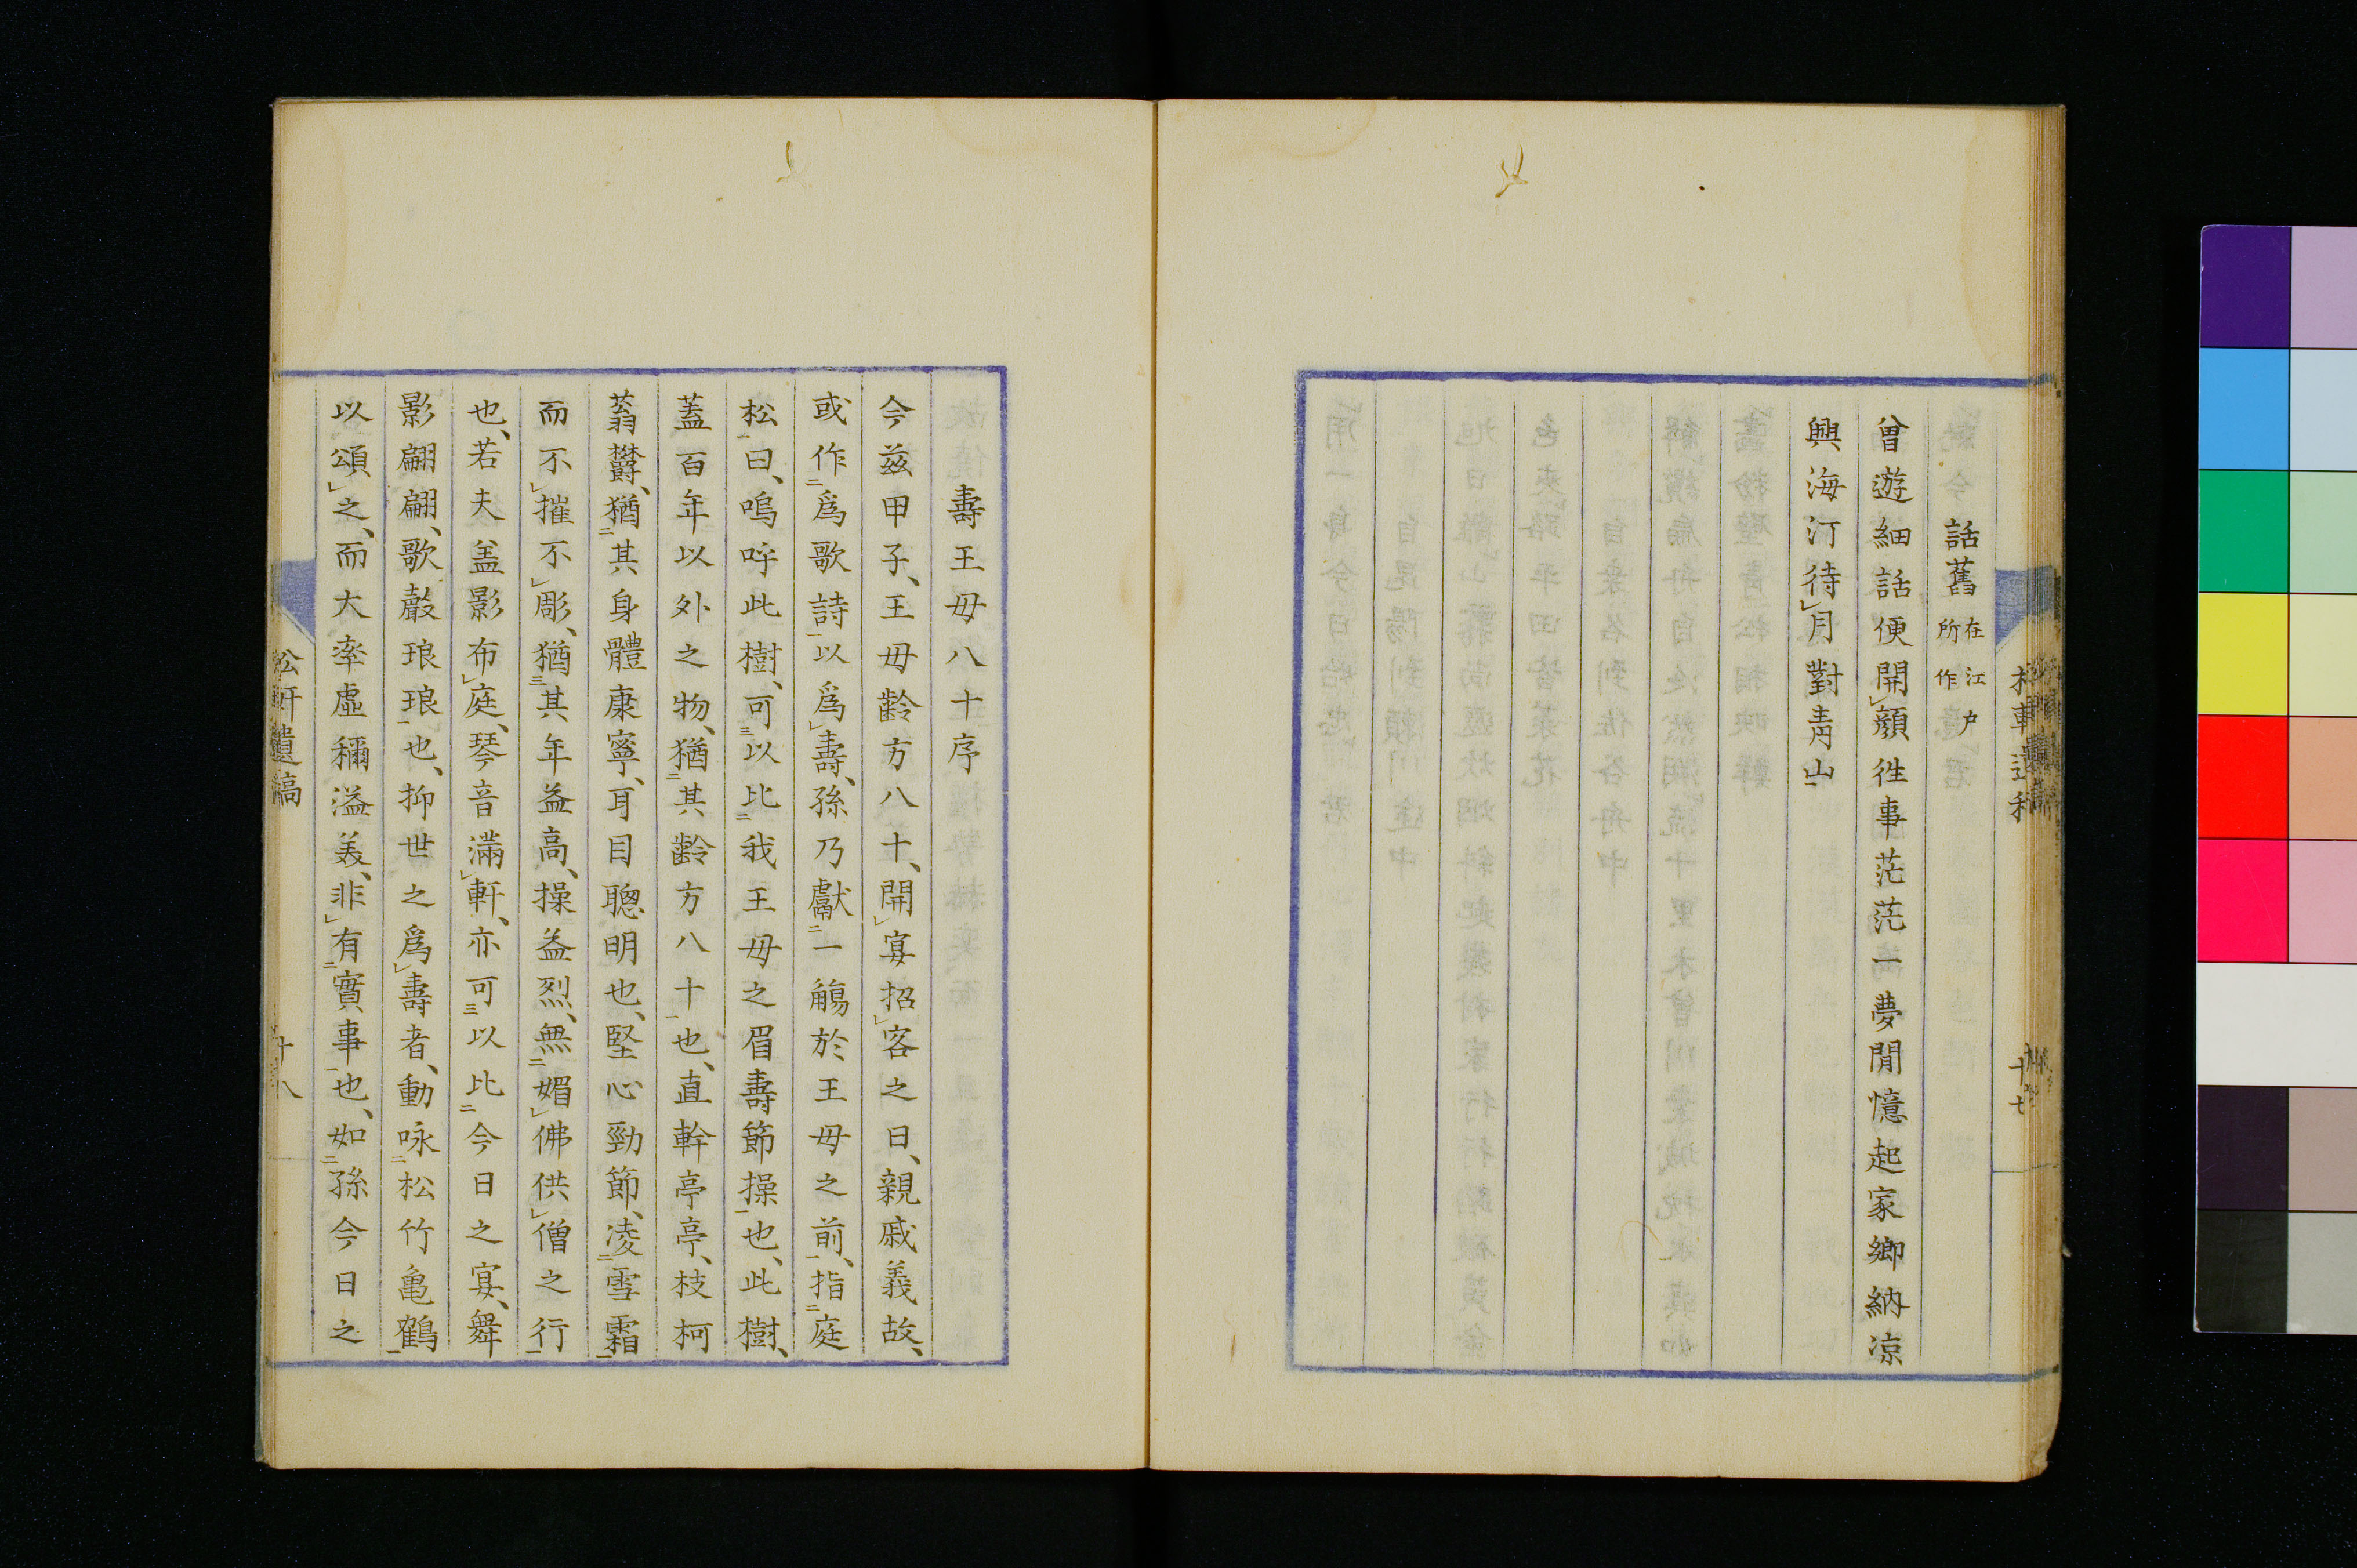 話舊 在江戸所作
曾遊細話便開顔徃事茫茫一夢間憶起家鄉納凉
興海汀待月對青山
壽王母八十序
今兹甲子、王母齡方八十、開宴招客之日、親戚義故、
或作爲歌詩以爲壽、孫乃獻一觴於王母之前、指庭
松曰、嗚呼此樹、可以比我王母之眉壽節操也、此樹、
蓋百年以外之物、猶其齡方八十也、直幹亭亭、枝柯
蓊欝、猶其身體康寧、耳目聰明也、堅心勁節、凌雪霜
而不摧不彫、猶其年益高、操益烈、無媚佛供僧之行
也、若夫盖影布庭、琴音滿軒、亦可以比今日之宴、舞
影翩翩、歌聲琅琅也、抑世之爲壽者、動咏松竹亀鶴
以頌之、而大率虛稱溢美、非有實事也、如孫今日之
松軒遺稿 十八